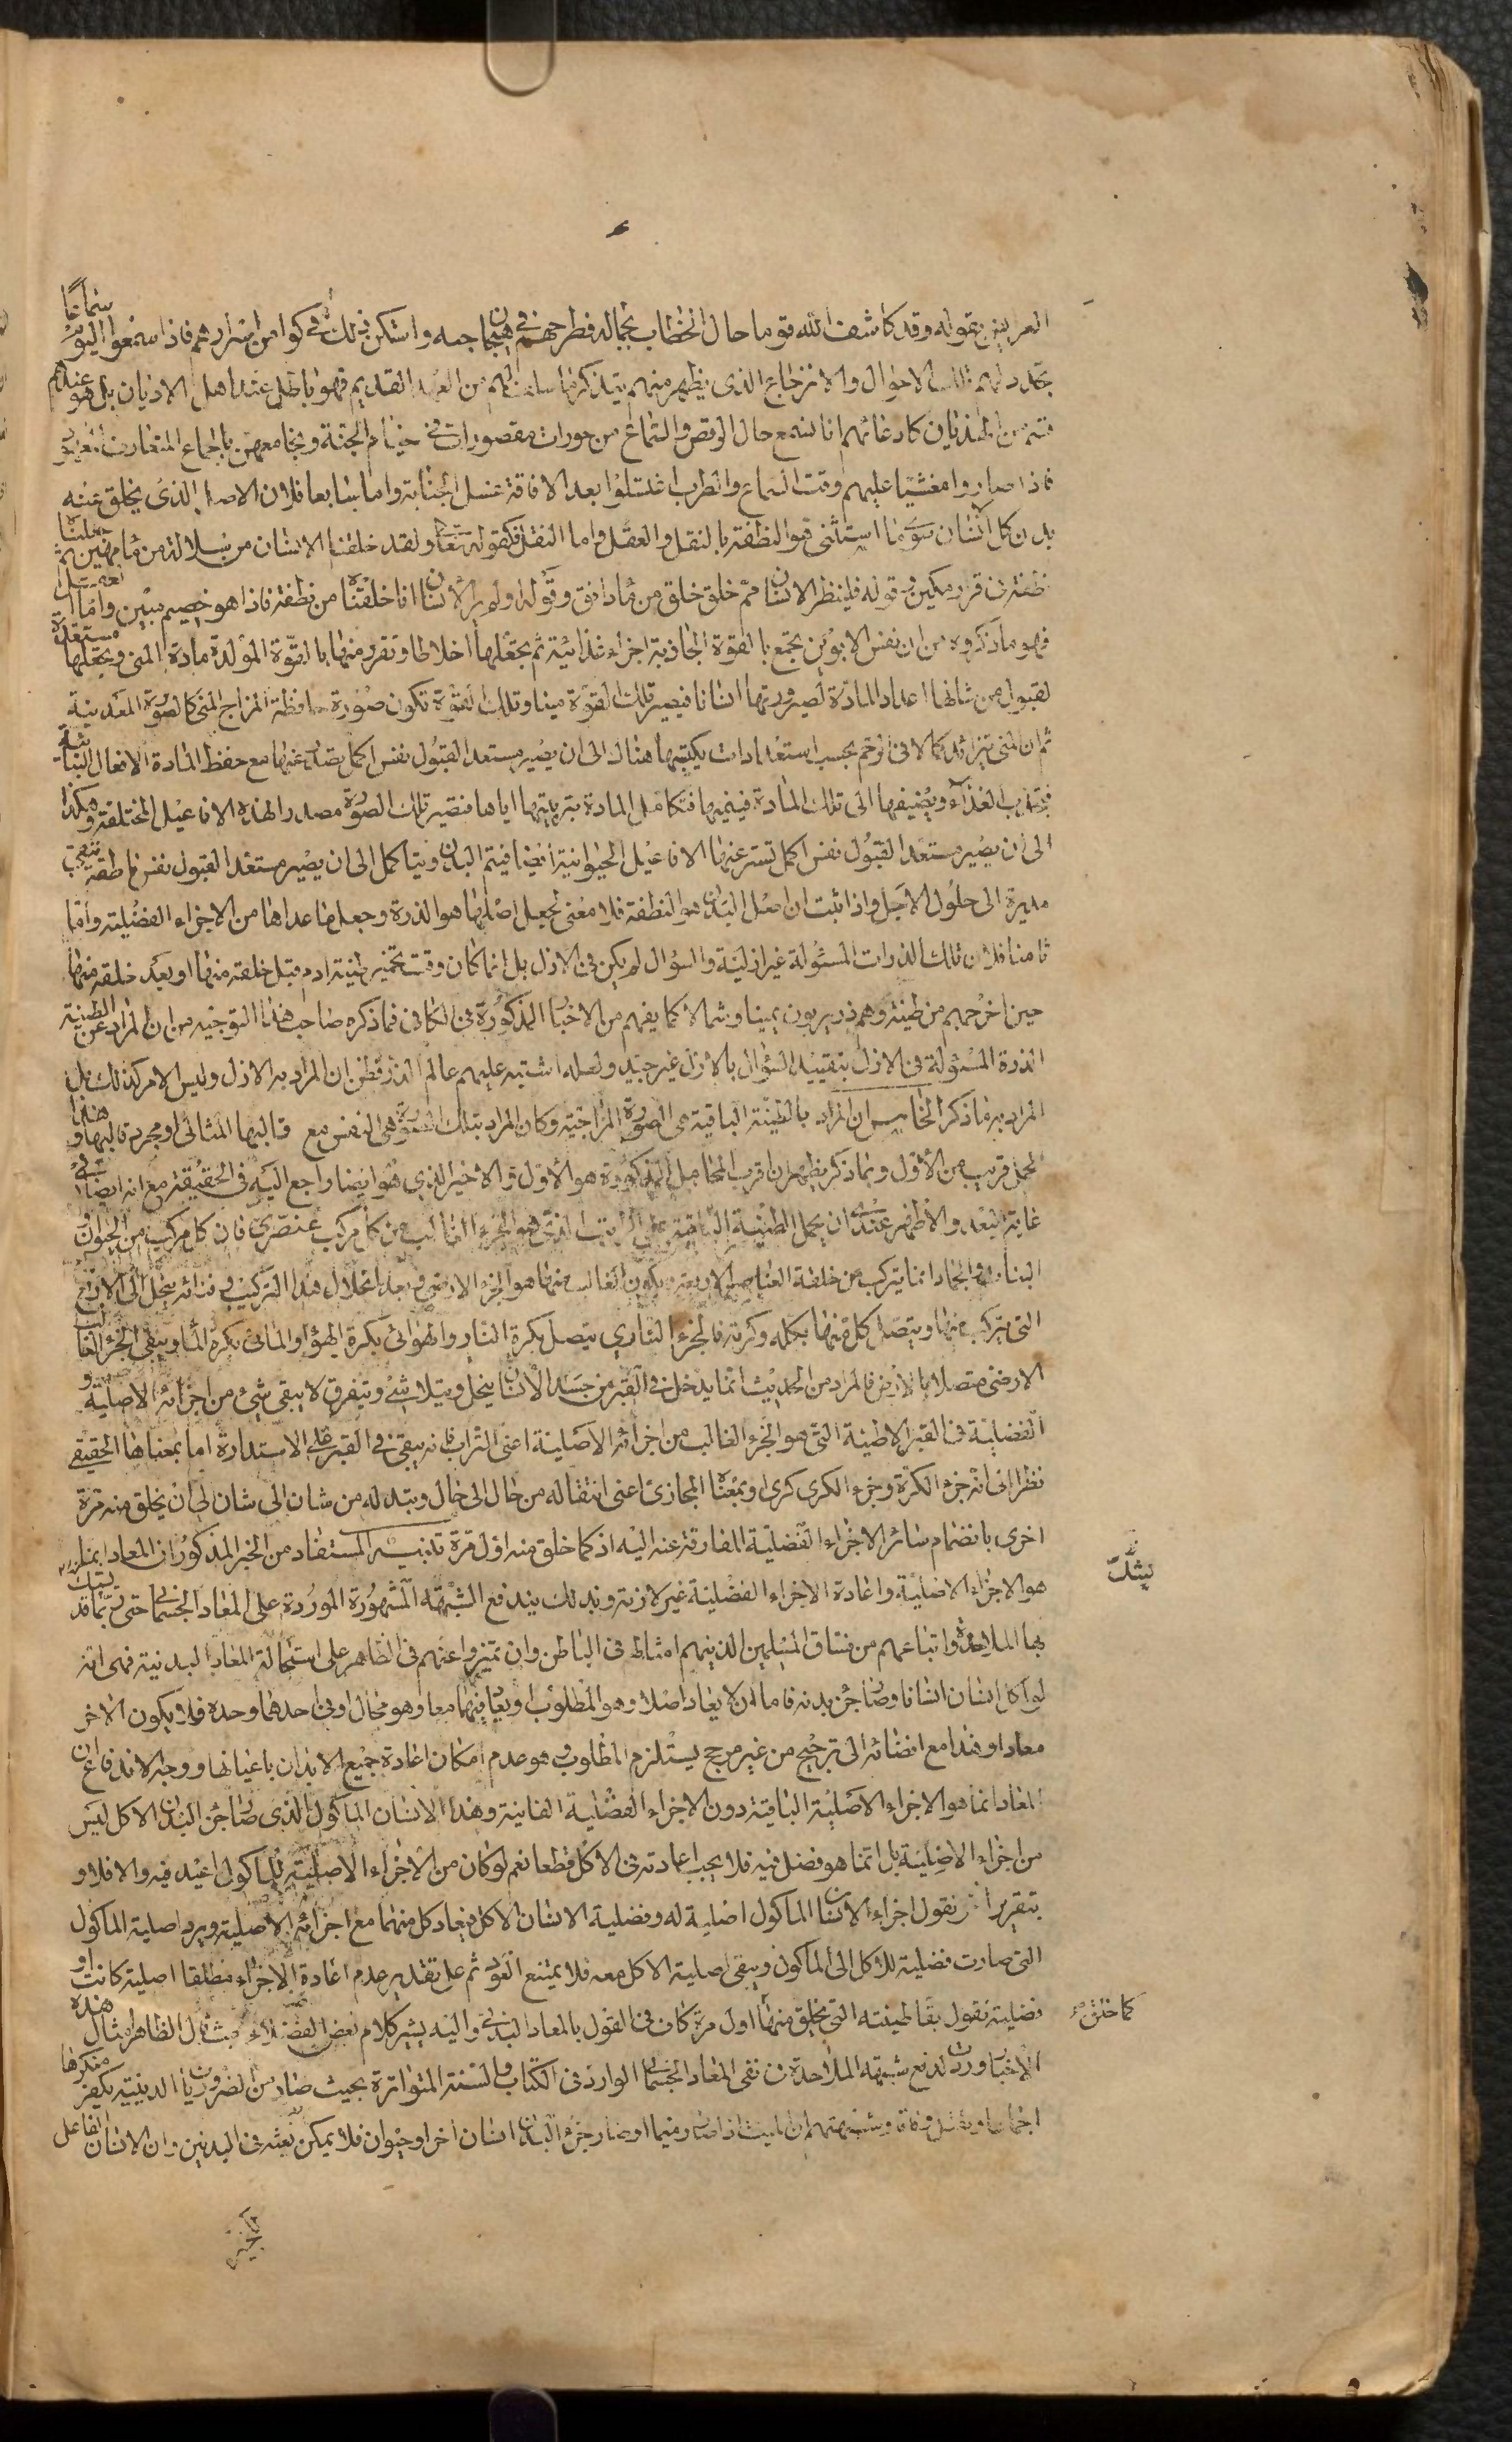 العربين بقوله وقد كاشف الله قوما حال الخطاب بجماله فطرحهم في هيجان حبه واستكن ذلك في كوامن اسرارهم فاذا سمعوا اليوم سماعا
تجدد لهم تلك الاحوال والانزعاج الذي يظهر منهم بتذكر ما سلف لهم من العهد القديم فهو باطل عند اهل الاديان بل هو عندهم
قسم من الهذيان كادعائهم انا نسمع حال الرقص والسماع من حورات مقصورات في خيام الجنة ونجامعهن بالجماع المتعارف
فاذا صاروا مغشيا عليهم وقت السماع والطرب اغتسلوا بعد الافاقة غسل الجنابة واما سابعا فلان الاصل الذي يخلق عنه
بدن كل انسان سوى ما استثنى هو النطفة بالنقل والعقل واما النقل فكقوله تعالى ولقد خلقنا الانسان من سلالة من ماء مهين ثم جعلناه
نطفة في قرار مكين وقوله فلينظر الانسان مم خلق خلق من ماء دافق وقوله اولم ير الانسان انا خلقناه من نطفة فاذا هو خصيم مبين واما العقل
فهو ما ذكروه من ان نفس الابوين تجمع بالقوة الجاذبة اجزاء غذائية ثم تجعلها اخلاطا وتفرز منها بالقوة المولدة مادة المني وتجعلها مستعدة
لقبول من شانها اعداد المادة لصيرورتها انسانا فيصير تلك القوة منيا وتلك القوة تكون صورة حافظة المزاج المني كالصورة المعدنية
ثم ان المني يتزائد كمالا في الرحم بحسب استعدادات يكتسبها هناك الى ان يصير مستعدا لقبول نفس اكمل يصدر عنها مع حفظ المادة الافعال النباتية
فيجذب الغذاء ويضيفها الى تلك المادة فينميها فتكامل المادة بتربيتها اياها فتصير تلك الصورة مصدرا لهذه الافاعيل المختلفة وهكذا
الى ان يصير مستعدا لقبول نفس اكمل تصدر عنها الافاعيل الحيوانية ايضا فيتم البدن ويتاكمل الى ان يصير مستعدا لقبول نفس ناطقة تبقى
مدبرة الى حلول الاجل واذا ثبت ان اصل البدن هو النطفة فلا معنى لجعل اصلها هو الذرة وجعل ما عداها من الاجزاء الفضلية واما
ثامنا فلان تلك الذرات المسئولة غير ازلية والسؤال لم يكن في الازل بل انما كان وقت تخمير طينة ادم قبل خلقته منها او بعد خلقه منها
حين اخرجهم من طينته وهم ذر يدبون يمينا وشمالا كما يفهم من الاخبار المذكورة في الكافي فما ذكره صاحب هذا التوجيه من ان المراد عن الطينة
الذرة المسئولة في الازل بتقييد السؤال بالازل غير جيد ولعله اشتبه عليهم عالم الذر فظن ان المراد به الازل وليس الامر كذلك بل
المراد به ما ذكر الخامس ان المراد بالطينة الباقية هي الصورة المزاجية وكان المراد بتلك الصورة هي النفس مع قالبها المثالي او مجرد قالبها وهذا
المحمل قريب من الاول ومما ذكر يظهر ان اقرب المحامل المذكورة هو الاول والاخير الذي هو ايضا راجع اليه في الحقيقة مع انه ايضا في
غاية البعد والاظهر عندي ان يحمل الطينة الباقية على التراب الذي هو الجزء الغالب من كل مركب عنصري فان كل مركب من الحيوان
النبات والجماد انما يتركب من خلقة العناصر الاربعة ويكون الغالب منها هو الجزء الارضي وبعد انحلال هذا التركيب وفنائه ينحل الى الاربع
التي يتركب منها ويتصل كل منها بكله وكرته فالجزء الناري يتصل بكرة النار والهوائي بكرة الهواء والمائي بكرة الماء ويبقى الجزء الغالب
الارضي متصلا بالارض فالمراد من الحديث انما يدخل في القبر من جسد الانسان ينحل ويتلاشى ويتفرق لا يبقى شيء من اجزائه الاصلية و
الفضلية في القبر الا طينة التي هو الجزء الغالب من اجزائه الاصلية اعني التراب فانه يبقى في القبر على الاستدارة اما بمعناها الحقيقي
نظرا الى انه جزء الكرة وجزء الكري كري او بمعناه المجازي اعني انتقاله من حال الى حال وتبدله من شان الى شان الى ان يخلق منه مرة
اخرى بانضمام سائر الاجزاء الفضلية المفارقة عنه اليه اذ كما خلق منه اول مرة تذنيب المستفاد من الخبر المذكور ان المعاد انما
هو الاجزاء الاصلية واعادة الاجزاء الفضلية غير لازمة وبذلك يندفع الشبهة المشهورة الموردة على المعاد الجسماني حتى ربما قد يتشكك
بها الملاحدة واتباعهم من فساق المسلمين الذينهم امثالهم في الباطن وان تميزوا عنهم في الظاهر على استحالة المعاد البدنية فهي انه
لو اكل انسان انسانا وصار جزء بدنه فاما ان لا يعاد اصلا وهو المطلوب او يعاد فيهما معا وهو محال او في احدهما وحده فلا يكون الاخر
معادا وهذا مع افضائه الى ترجيح من غير مرجح يستلزم المطلوب وهو عدم امكان اعادة جميع الابدان باعيانها ووجه الاندفاع ان
المعاد انما هو الاجزاء الاصلية الباقية دون الاجزاء الفضلية الفانية وهذا الانسان الماكول الذي صار جزء البدن الاكل ليس
من اجزاء الاصلية بل انما هو فضل فيه فلا يجب اعادته في الاكل قطعا نعم لو كان من الاجزاء الاصلية للماكول اعيد فيه والا فلا و
بتقرير اخر نقول اجزاء الانسان الماكول اصلية له وفضلية الانسان الاكل فيعاد كل منهما مع اجزائه الاصلية ويرد اصلية الماكول
التي صارت فضلية للاكل الى الماكول ويبقى اصلية الاكل معه فلا يمتنع العود ثم على تقدير عدم اعادة الاجزاء مطلقا اصلية كانت او
فضلية نقول بقاء طينته التي يخلق منها اول مرة كاف في القول بالمعاد البدني واليه يشير كلام بعض الفضلاء حيث قال الظاهر امثال هذه
الاخبار وردت لدفع شبهة الملاحدة في نفي المعاد الجسماني الوارد في الكتاب والسنة المتواترة بحيث صار من الضروريات الدينية يكفر منكرها
اجماعا وشبهتهم ان الميت اذا صار رميما او صار جزء البدن انسان اخر او حيوان فلا يمكن بعثه في البدنين وان الانسان الفاعل
كما خلق